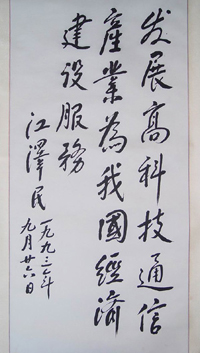 发展高科技通信
產業為我國經濟
建设服務
江澤民
一九九三年
九月廿六日